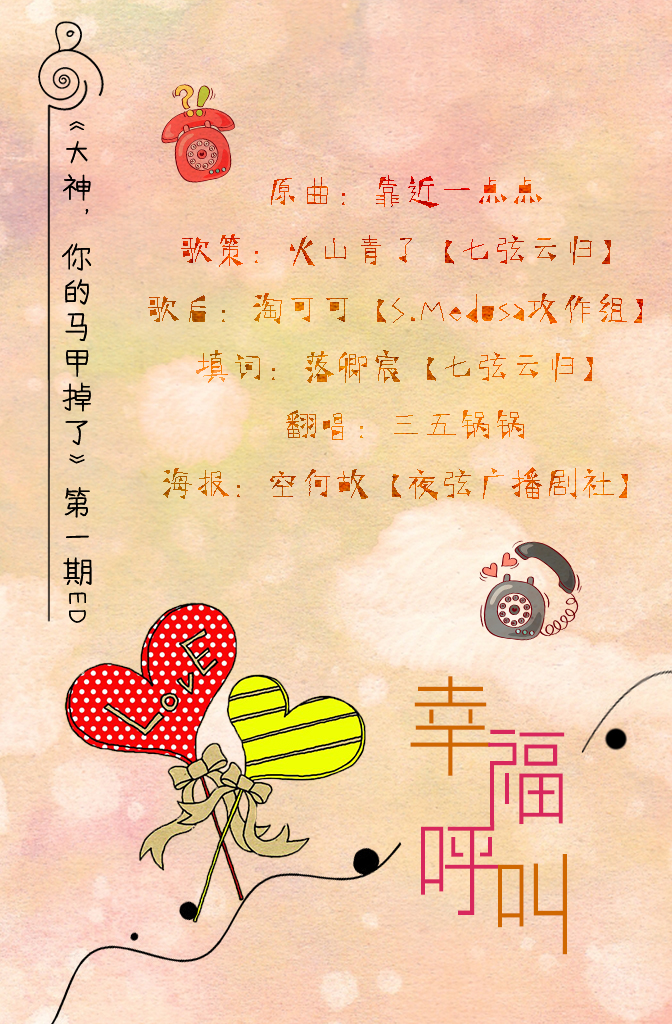 《大神，你的马甲掉了》第一期ED
原曲：靠近一点点
歌策：火山青了【七弦云归】
歌后：淘可可【S.Medusa攻作组】
填词：落卿宸【七弦云归】
翻唱：三五锅锅
海报：空何故【夜弦广播剧社】
LOVE
幸福呼叫